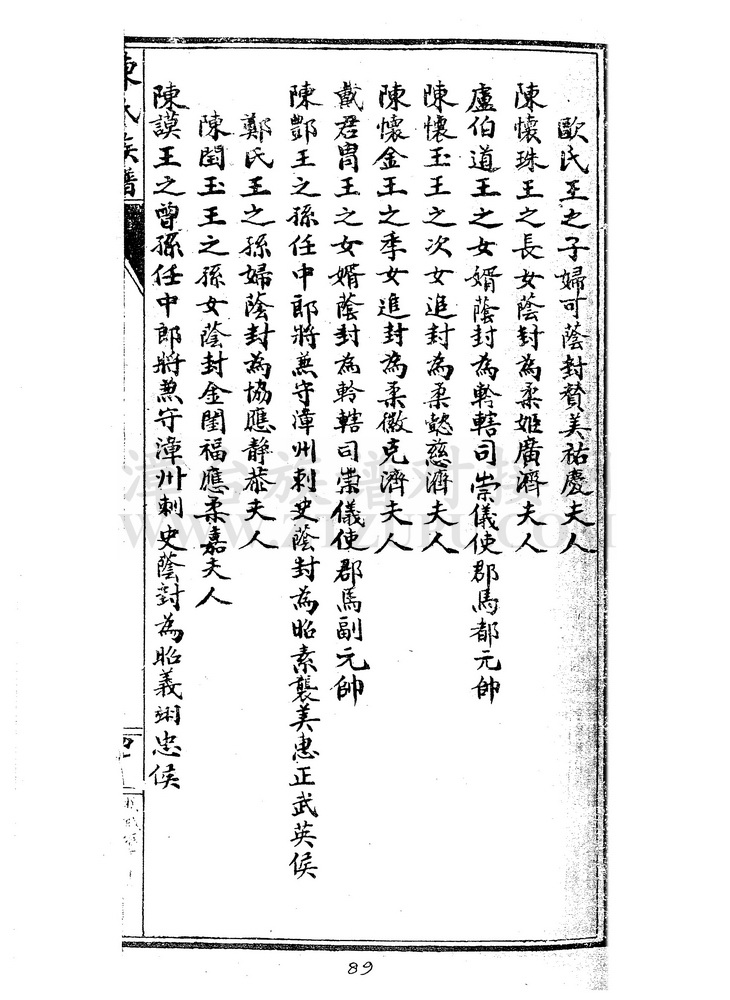 歐氏王之子婦可蔭封贊美祐慶夫人
陳懷珠王之長女蔭封為柔姬廣濟夫人
盧伯道王之女婿蔭封為軨轄司崇儀使郡馬都元帥
陳懷玉王之次女追封為柔懿慈濟夫人
陳懷金王之季女追封為柔徽克濟夫人
戴君胄王之女婿蔭封為軨轄司崇儀使郡馬副元帥
陳酆王之孫任中郎將兼守漳州刺史蔭封為昭素襲美惠正武英侯
鄭氏王之孫婦蔭封為協應靜恭夫人
陳閨玉王之孫女蔭封金閨福應柔嘉夫人
陳謨王之曾孫任中郎將兼守漳州刺史蔭封為昭義翊忠侯
陳氏族譜
漳台族谱对接
www.zzzupu.com
89